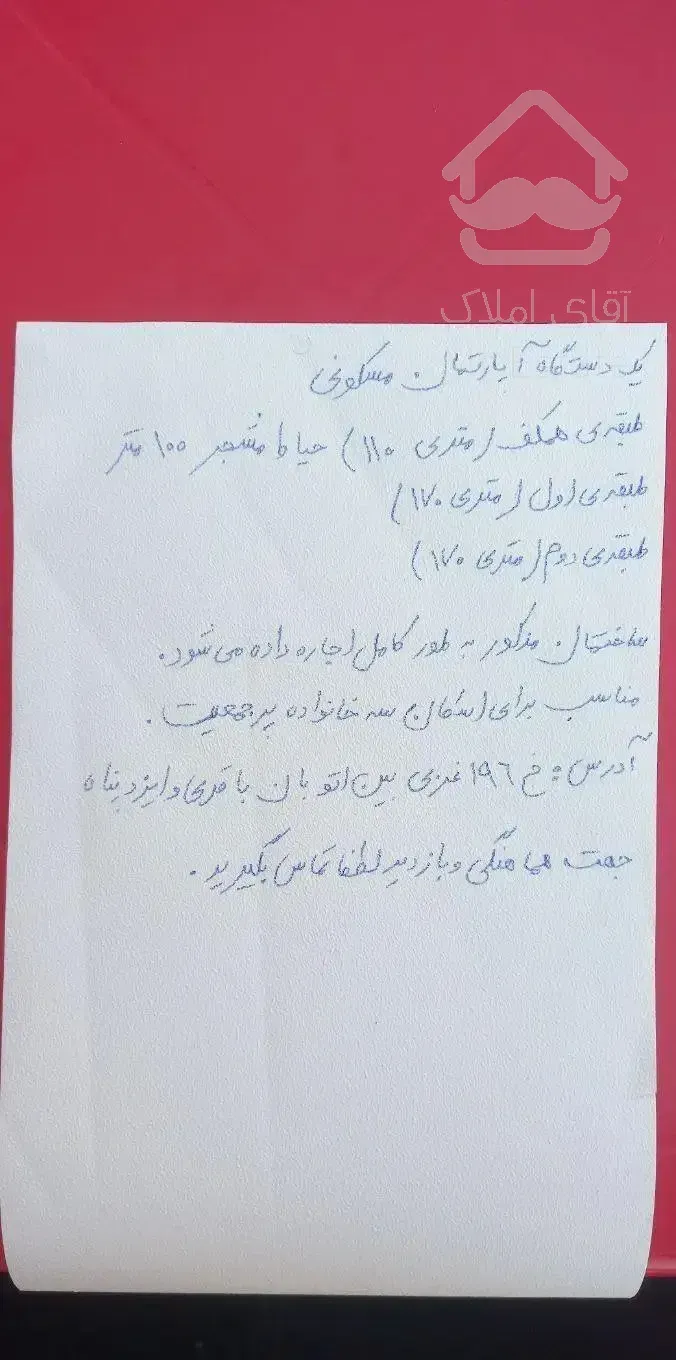 آقای املاک
یک دستگاه آپارتمان مسکونی
طبقه‌ی همکف (متری ۱۱۰) حیاط مشجر ۱۰۰ متر
طبقه‌ی اول (متری ۱۷۰)
طبقه‌ی دوم (متری ۱۷۰)
ساختمان مذکور به طور کامل اجاره داده می شود.
مناسب برای اسکان سه خانواده پرجمعیت.
آدرس: خ ۱۹۶ غربی بین اتوبان باقری و ایزدپناه
جهت هماهنگی و بازدید لطفا تماس بگیرید.